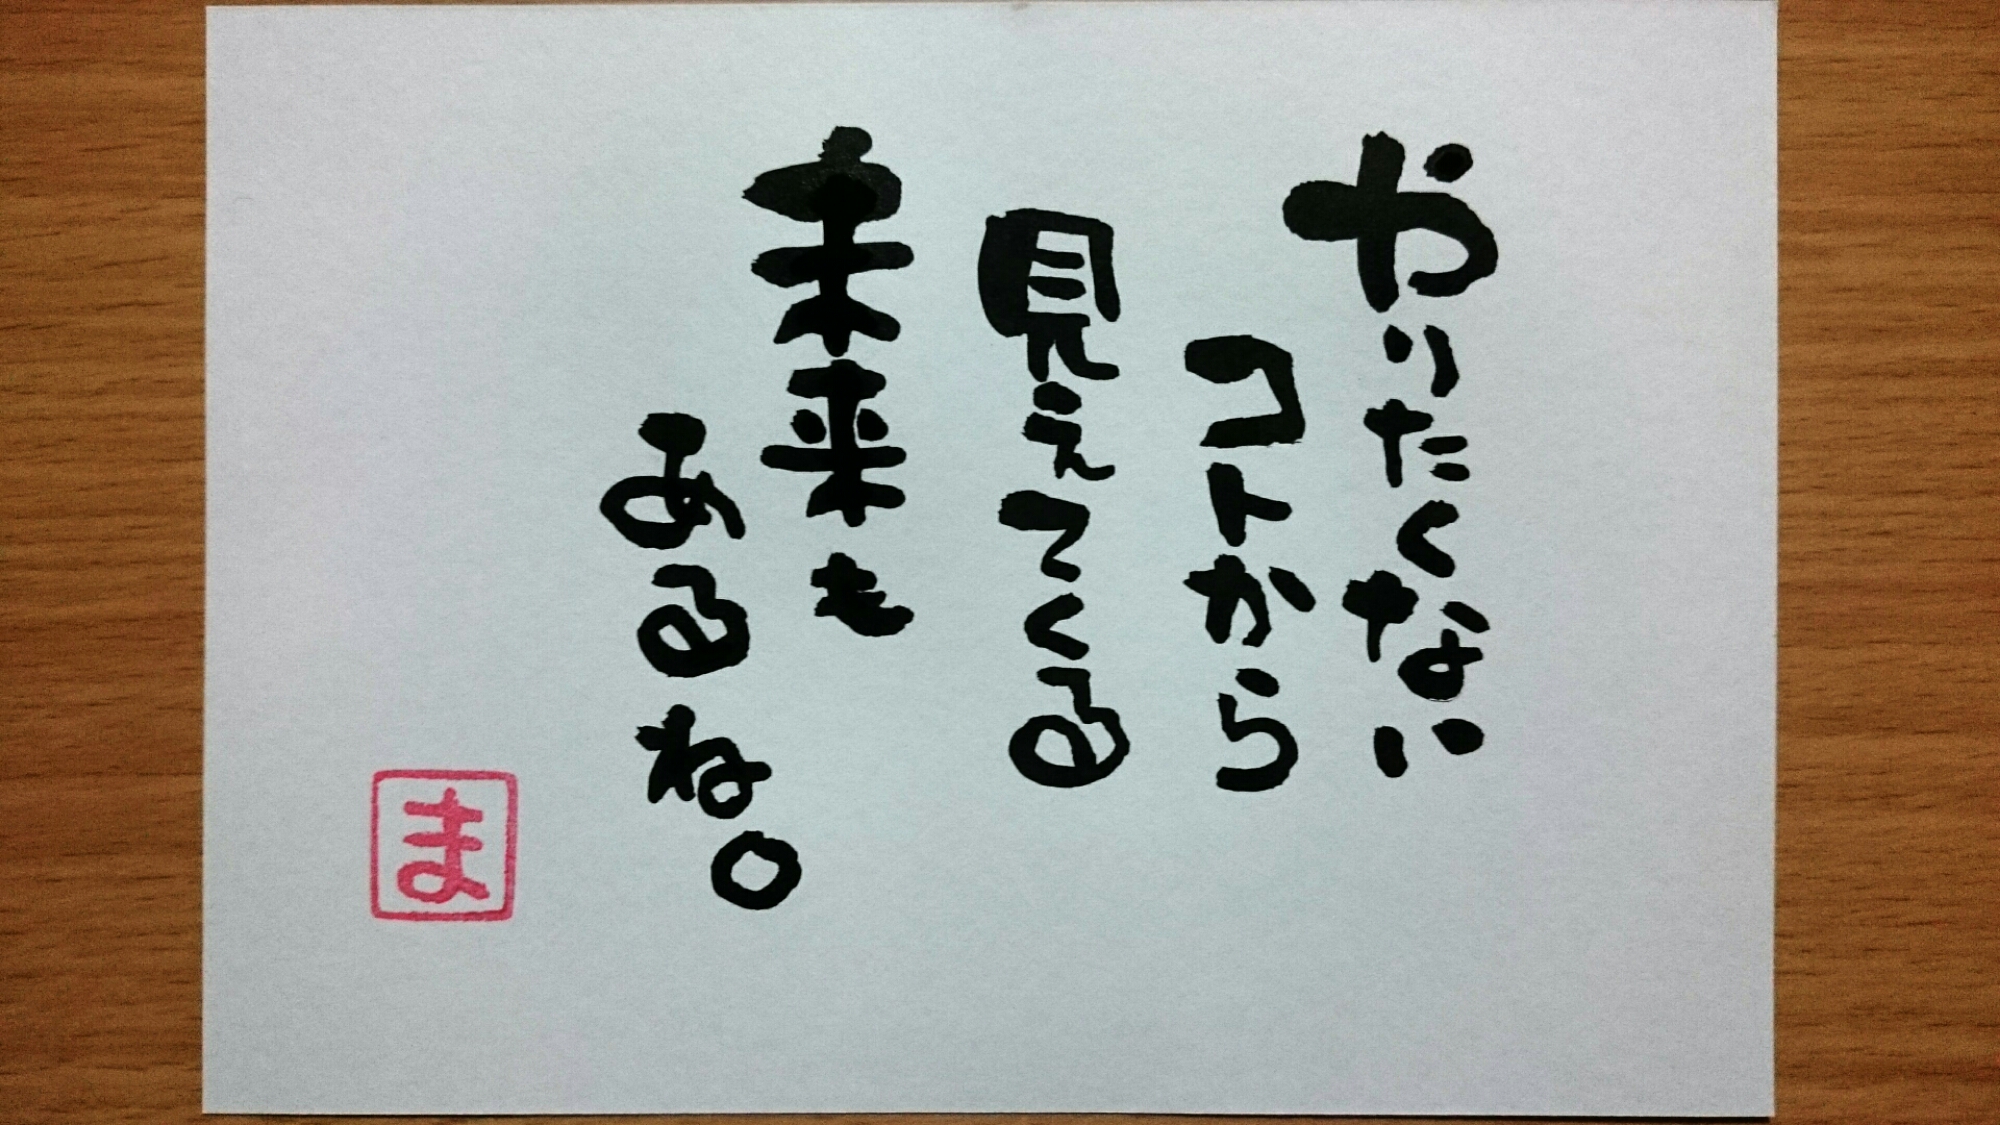 やりたくない
コトから
見えてくる
未来も
あるね。
ま